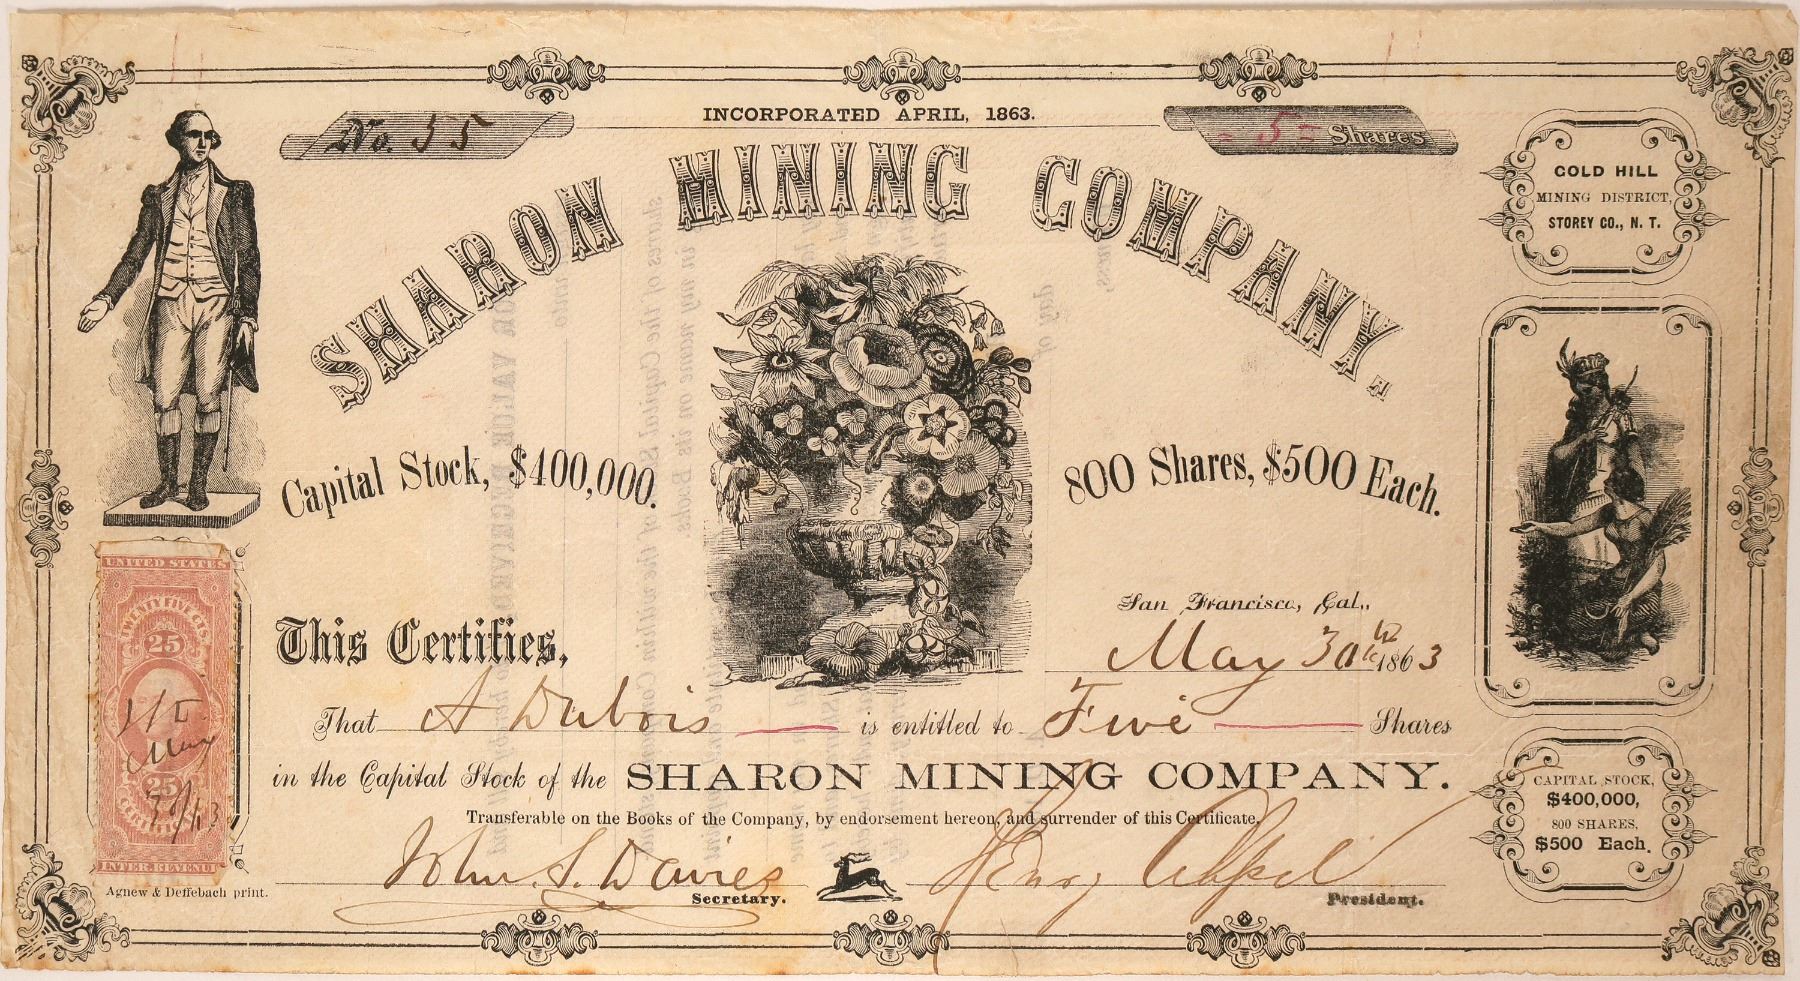 INCORPORATED APRIL, 1863.
No. 55
= 5 = Shares
SHARON MINING COMPANY.
GOLD HILL
MINING DISTRICT,
STOREY CO., N. T.
Capital Stock, $400,000.
800 Shares, $500 Each.
UNITED STATES
TWENTY FIVE CTS.
25
May
25
INTER. REVENUE
San Francisco, Cal.,
May 30th 1863
This Certifies,
That A Dubois is entitled to Five Shares
in the Capital Stock of the SHARON MINING COMPANY.
Transferable on the Books of the Company, by endorsement hereon, and surrender of this Certificate.
John S. Davies
Secretary.
Henry
President.
CAPITAL STOCK,
$400,000,
800 SHARES,
$500 Each.
Agnew & Deffebach print.